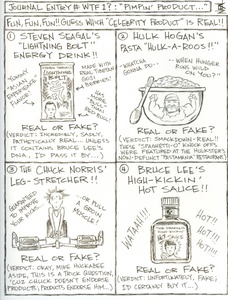 JOURNAL ENTRY # WTF1?: "PIMPIN' PRODUCT..."
FUN, FUN, FUN!! GUESS WHICH "CELEBRITY PRODUCT" IS REAL!!
① STEVEN SEAGAL'S
"LIGHTNING BOLT"
ENERGY DRINK!!
MADE WITH
REAL
TIBETAN
REAL OR FAKE?
(VERDICT: INCREDIBLY, SADLY,
PATHETICALLY REAL... UNLESS
IT CONTAINS BRUCE LEE'S
DNA, I'D PASS IT BY...)
② HULK HOGAN'S
PASTA "HULK-A-ROOS"!!
"WHATCHA
GONNA DO...
...WHEN HUNGER
RUNS WILD
ON YOU?"
REAL OR FAKE?
(VERDICT: SMACKDOWN-REAL!!
THESE "SPAGHETTI-O" KNOCK OFFS
WERE FEATURED AT THE HULKSTER'S
NOW-DEFUNCT "PASTAMENIA" RESTAURANT!)
③ THE CHUCK NORRIS'
LEG-STRETCHER!!
REAL OR FAKE?
(VERDICT: OKAY, MIKE HUCKABEE
ASIDE, THIS IS A TRICK QUESTION,
'CUZ CHUCK DOESN'T ENDORSE
PRODUCTS, PRODUCTS ENDORSE HIM...)
④ BRUCE LEE'S
HIGH-KICKIN'
HOT SAUCE!!
HOT!!
HOT!!
HOT!!
REAL OR FAKE?
(VERDICT: UNFORTUNATELY, FAKE;
I'D CERTAINLY BUY IT...)